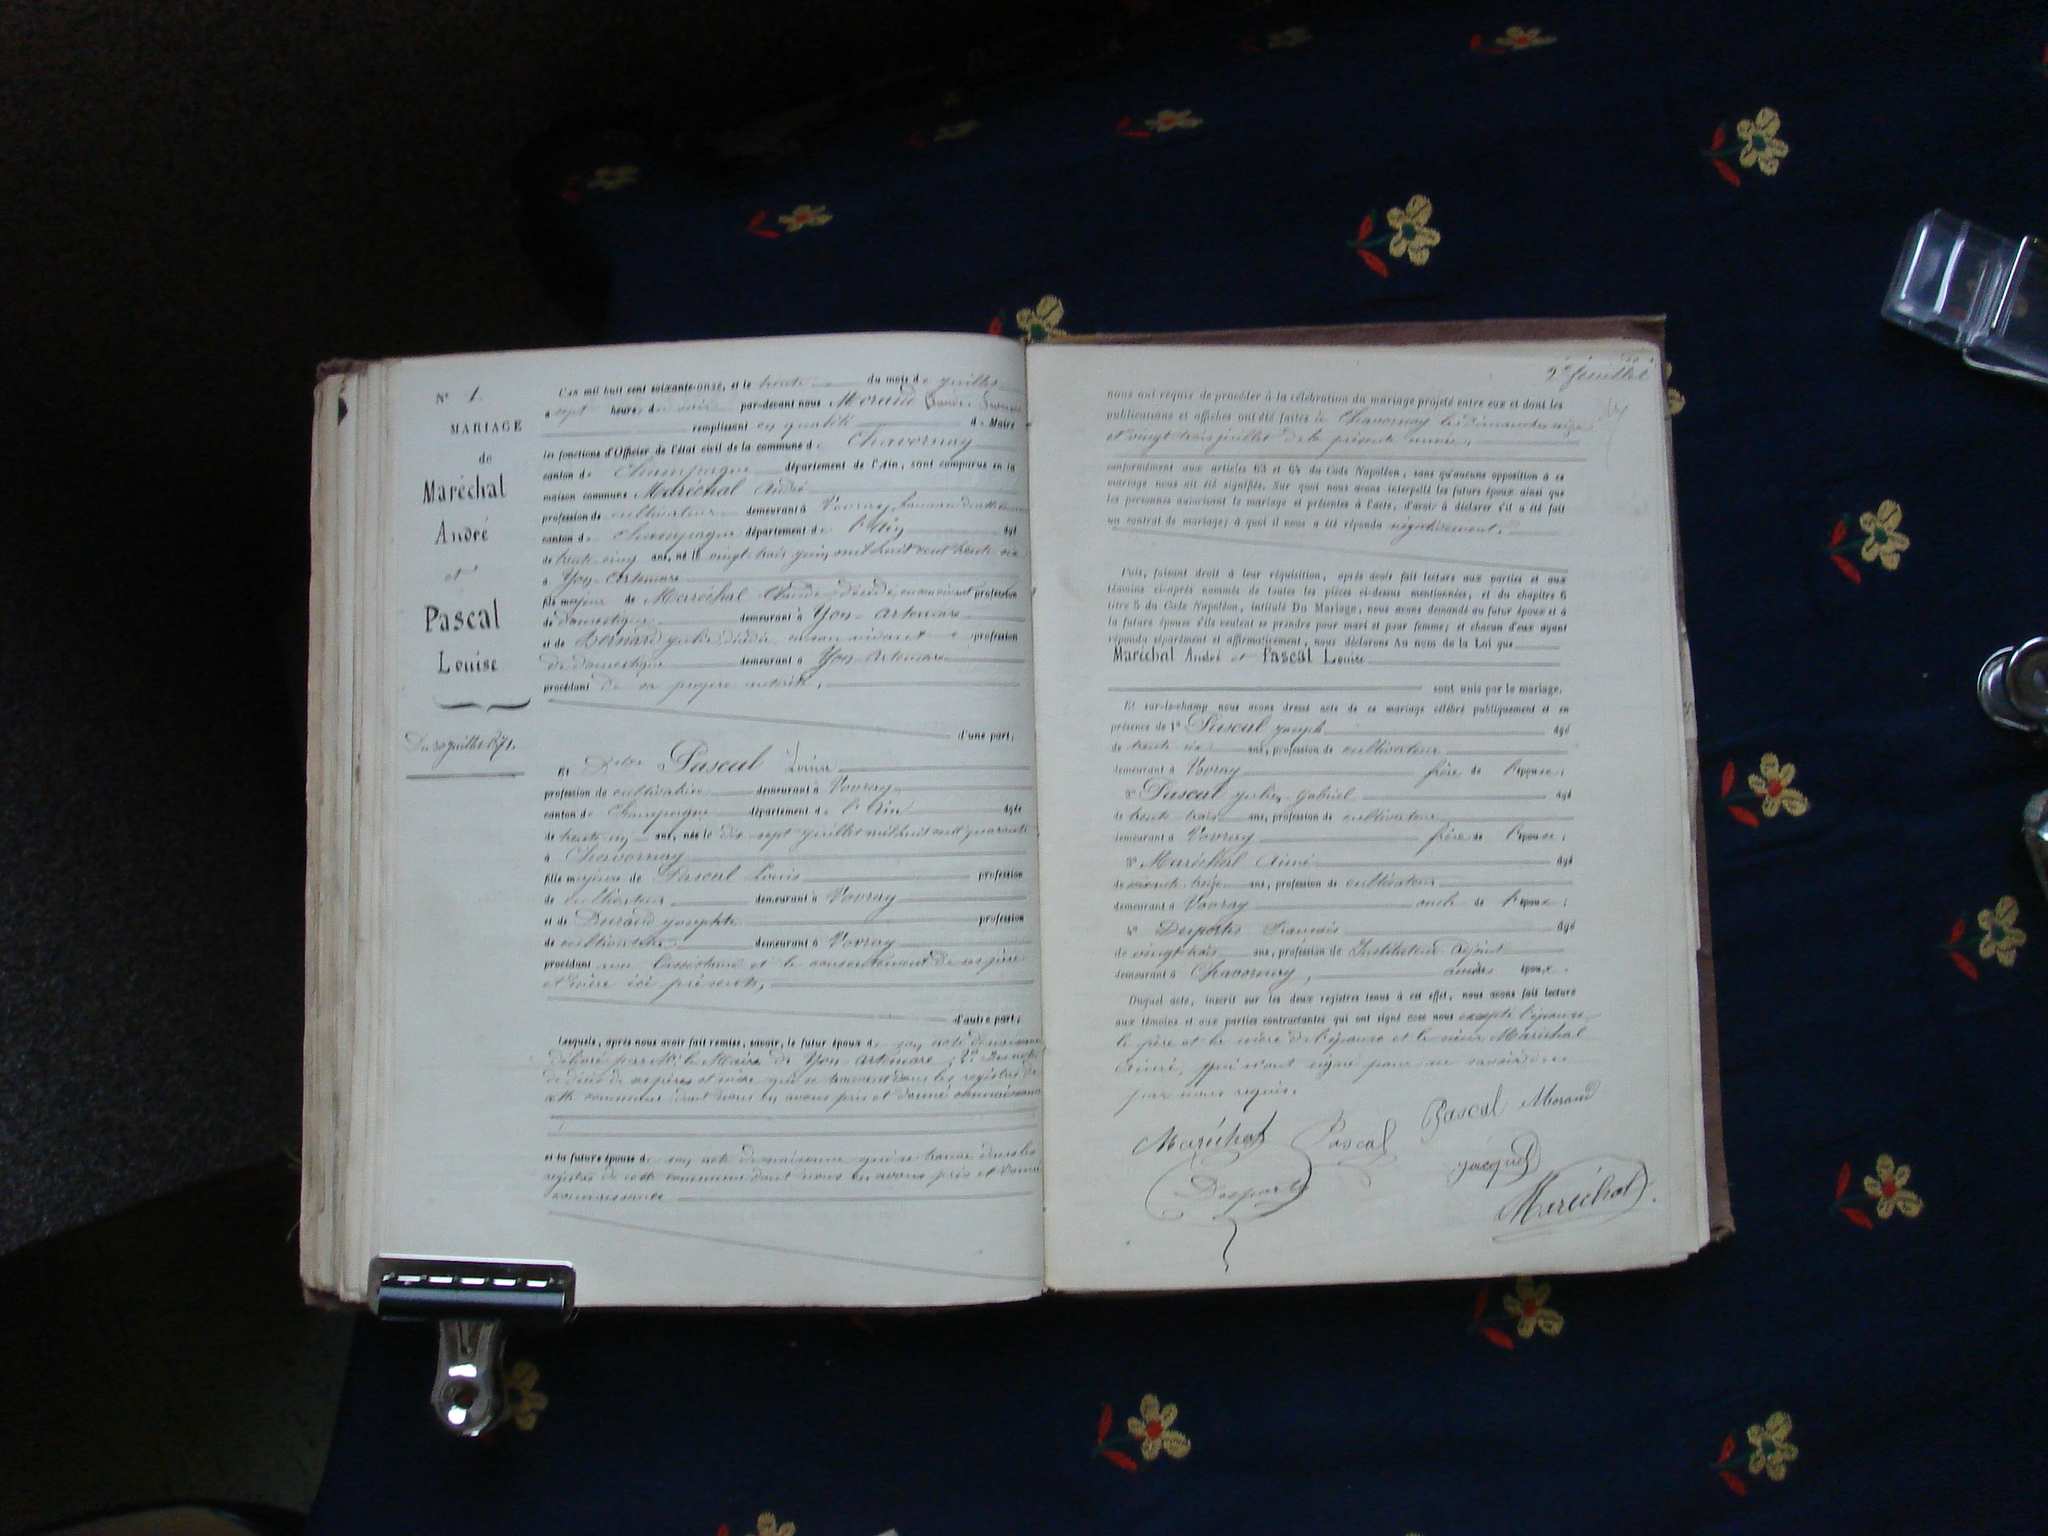 N° 1.
MARIAGE
de
Maréchal
André
et
Pascal
Louise
Du 30 juillet 1871.
L'an mil huit cent soixante-onze, et le trente du mois de juillet
a sept heures du soir par-devant nous Morand
remplissant en qualité de Maire
les fonctions d'Officier de l'état civil de la commune de Chavornay
canton de Champagne département de l'Ain, sont comparus en la
maison commune Maréchal André
profession de cultivateur demeurant à Vovray
canton de Champagne département de l'Ain âgé
de trente cinq ans, né le vingt trois juin mil huit cent trente six
à Yon-Artemare
fils majeur de Maréchal Claude, décédé, en son vivant profession
de domestique demeurant à Yon-Artemare
et de Bernard Julie décédée en son vivant profession
de domestique demeurant à Yon-Artemare
procédant de sa propre autorité,
d'une part;
Et Delle Pascal Louise
profession de cultivatrice demeurant à Vovray
canton de Champagne département de l'Ain âgée
de trente un ans, née le dix sept juillet mil huit cent quarante
à Chavornay
fille majeure de Pascal Louis profession
de cultivateur demeurant à Vovray
et de Durand Josephte profession
de cultivatrice demeurant à Vovray
procédant avec l'assistance et le consentement de ses père
et mère ici présents,
d'autre part;
Lesquels, après nous avoir fait remise, savoir, le futur époux de son acte de naissance
délivré par Mr le Maire de Yon-Artemare; 2° Des actes
de décès de ses père et mère qui se trouvent dans les registres de
cette commune dont nous en avons pris et donné connaissance
et la future épouse de son acte de naissance qui se trouve dans les
registres de cette commune dont nous en avons pris et donné
connaissance
2e feuillet
nous ont requis de procéder à la célébration du mariage projeté entre eux et dont les
publications et affiches ont été faites à Chavornay les dimanches seize
et vingt trois juillet de la présente année,
conformément aux articles 63 et 64 du Code Napoléon, sans qu'aucune opposition à ce
mariage nous ait été signifiée. Sur quoi nous avons interpellé les futurs époux ainsi que
les personnes autorisant le mariage et présentes à l'acte, d'avoir à déclarer s'il a été fait
un contrat de mariage; à quoi il nous a été répondu négativement.
Puis, faisant droit à leur réquisition, après avoir fait lecture aux parties et aux
témoins ci-après nommés de toutes les pièces ci-dessus mentionnées, et du chapitre 6
titre 5 du Code Napoléon, intitulé Du Mariage, nous avons demandé au futur époux et à
la future épouse s'ils veulent se prendre pour mari et pour femme; et chacun d'eux ayant
répondu séparément et affirmativement, nous déclarons Au nom de la Loi que
Maréchal André et Pascal Louise
sont unis par le mariage.
Et sur-le-champ nous avons dressé acte de ce mariage célébré publiquement et en
présence de 1° Pascal Joseph âgé
de trente six ans, profession de cultivateur
demeurant à Vovray frère de l'épouse;
2° Pascal Julien Gabriel âgé
de trente trois ans, profession de cultivateur
demeurant à Vovray frère de l'épouse;
3° Maréchal Aimé âgé
de soixante treize ans, profession de cultivateur
demeurant à Vovray oncle de l'époux;
4° Desportes François âgé
de vingt trois ans, profession de Instituteur adjoint
demeurant à Chavornay, époux.
Duquel acte, inscrit sur les deux registres tenus à cet effet, nous avons fait lecture
aux témoins et aux parties contractantes qui ont signé avec nous excepté l'épouse,
le père et la mère de l'épouse et le sieur Maréchal
Aimé, qui n'ont signé pour ne savoir de ce
par nous requis.
Maréchal Pascal Pascal Morand
Jacques
Desportes
Maréchal.